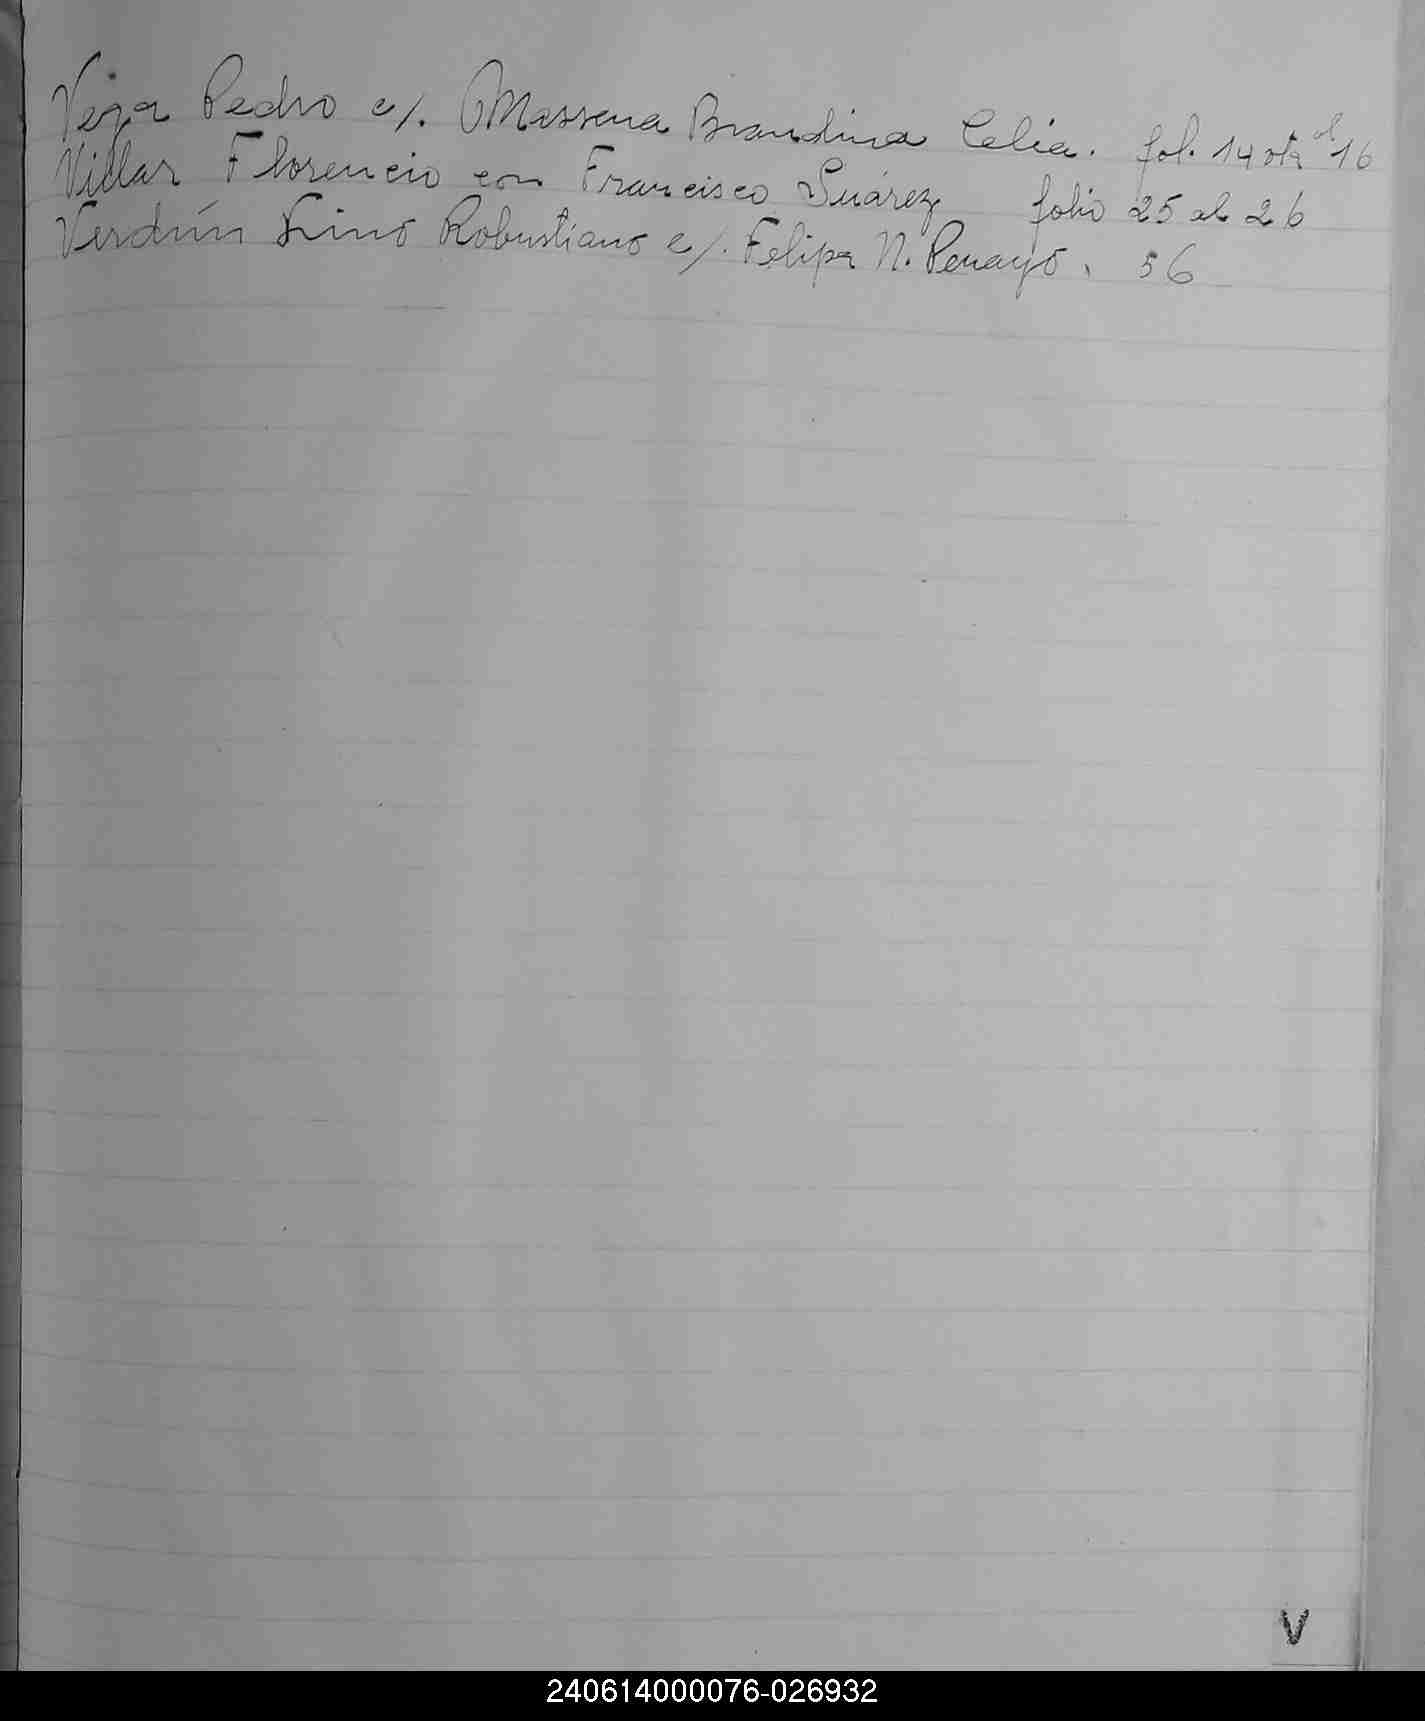 Vega Pedro c/. Massena Brandina Celia. fol. 14 vta al 16
Villar Florencio con Francisco Suárez folio 25 al 26
Verdún Lino Robustiano c/. Felipa N. Penayo. 56
V
240614000076-026932